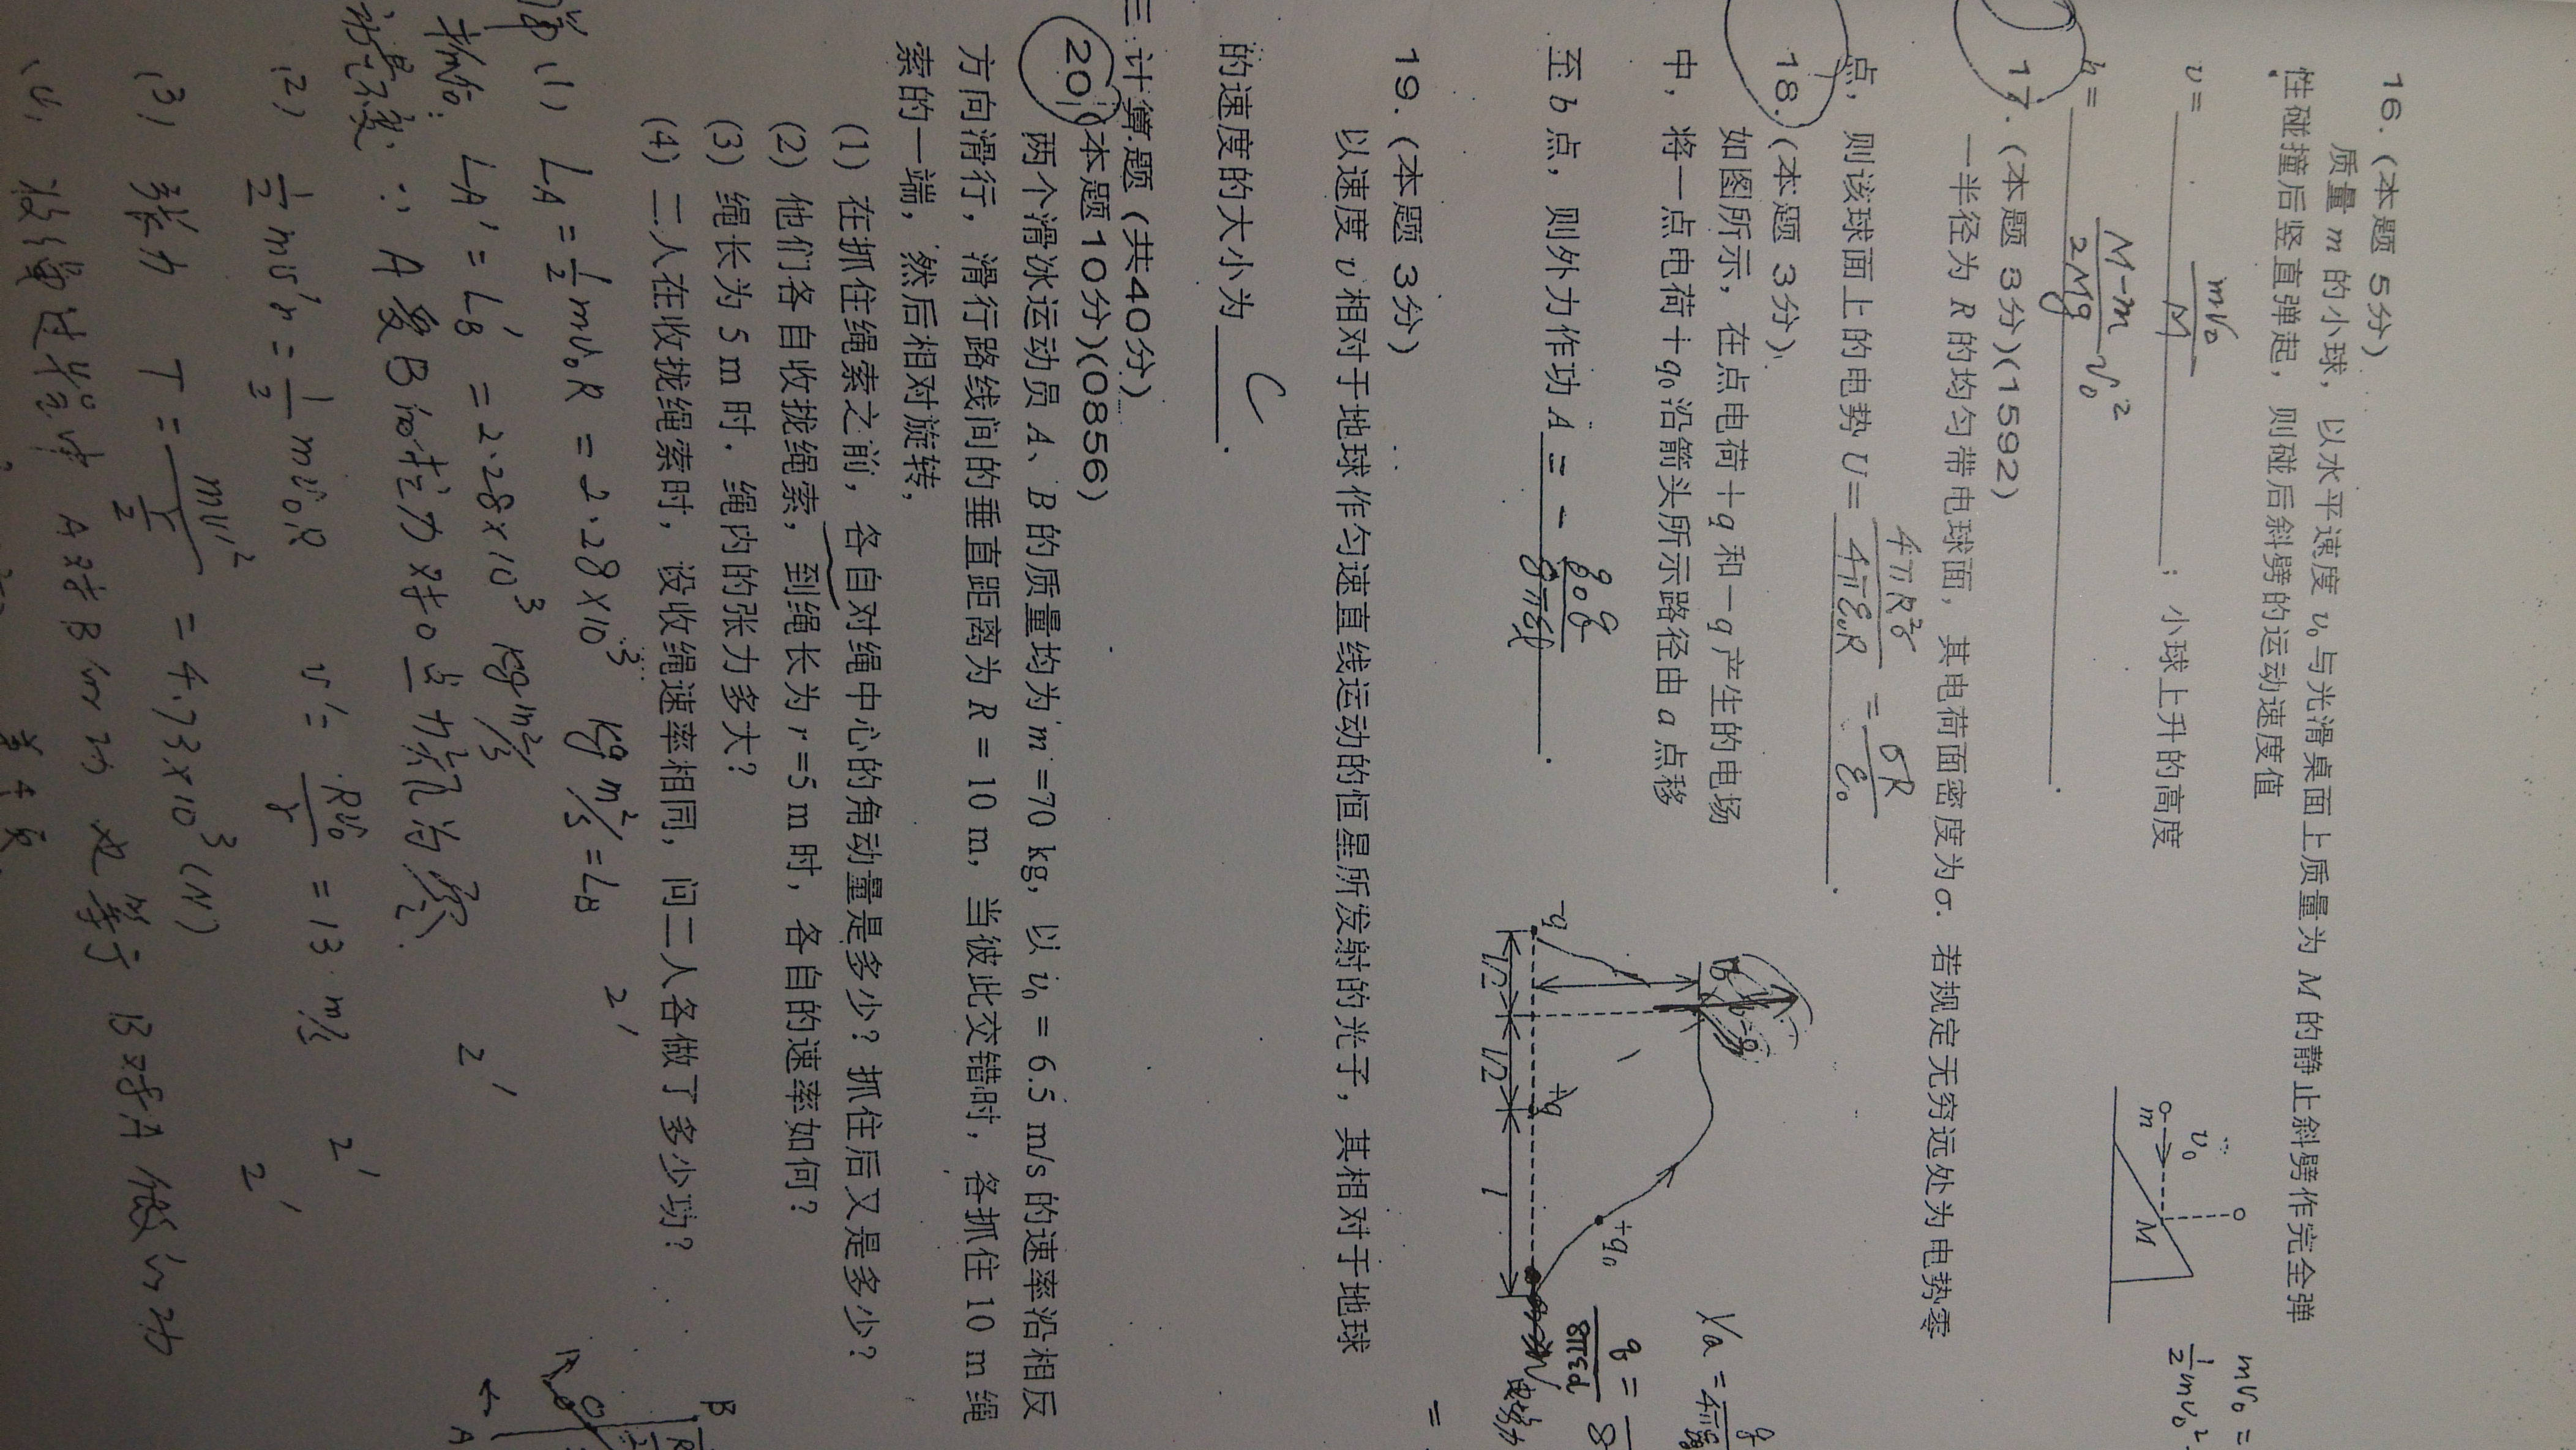 16.(本题 5分)
质量 m 的小球，以水平速度 v₀ 与光滑桌面上质量为 M 的静止斜劈作完全弹
性碰撞后竖直弹起，则碰后斜劈的运动速度值
v = mv₀/M ；小球上升的高度
h = (M-m)/(2Mg) v₀² .
17.(本题 3分)(1592)
一半径为 R 的均匀带电球面，其电荷面密度为σ. 若规定无穷远处为电势零
点，则该球面上的电势 U = 4πR²σ/4πε₀R = σR/ε₀ .
18.(本题 3分)
如图所示，在点电荷＋q 和－q 产生的电场
中，将一点电荷＋q₀沿箭头所示路径由 a 点移
至 b 点，则外力作功 A = - q₀q/8πε₀l .
-q
l/2
l/2
+q
l
+q₀
19.(本题 3分)
以速度 v 相对于地球作匀速直线运动的恒星所发射的光子，其相对于地球
的速度的大小为 C .
m
v₀
M
mv₀ =
½mv₀²
三.计算题 (共40分)
20.(本题10分)(0856)
两个滑冰运动员 A、B 的质量均为 m =70 kg，以 v₀ = 6.5 m/s 的速率沿相反
方向滑行，滑行路线间的垂直距离为 R = 10 m，当彼此交错时，各抓住 10 m 绳
索的一端，然后相对旋转，
(1) 在抓住绳索之前，各自对绳中心的角动量是多少？抓住后又是多少？
(2) 他们各自收拢绳索，到绳长为 r =5 m 时，各自的速率如何？
(3) 绳长为 5 m 时，绳内的张力多大？
(4) 二人在收拢绳索时，设收绳速率相同，问二人各做了多少功？
解 (1) L_A = ½ mv₀R = 2.28×10³ kg m²/s = L_B 2'
抓后: L_A' = L_B' = 2.28×10³ kg m²/s 2'
∵ A受B的拉力对o点力矩为零.
(2) ½ mv'r = ½ mv₀R v' = Rv₀/r = 13 m/s 2'
(3) 张力 T = mv'²/(r/2) = 4.73×10³ (N) 2'
B
A